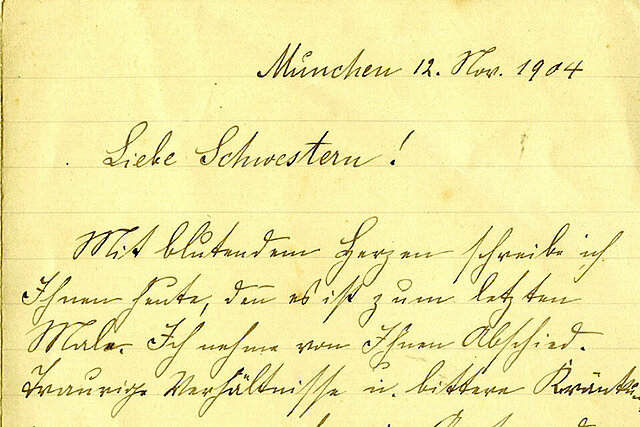 München 12. Nov. 1904
Liebe Schwestern!
Mit blutendem Herzen schreibe ich
Ihnen heute, den̄ es ist zum letzten
Male. Ich nehme von Ihnen Abschied.
Traurige Verhältnisse u. bittere Kränku